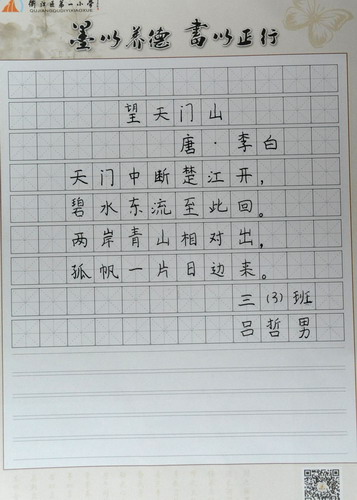 墨以养德 書以正行
望天门山
唐·李白
天门中断楚江开，
碧水东流至此回。
两岸青山相对出，
孤帆一片日边来。
三(3)班
吕哲男